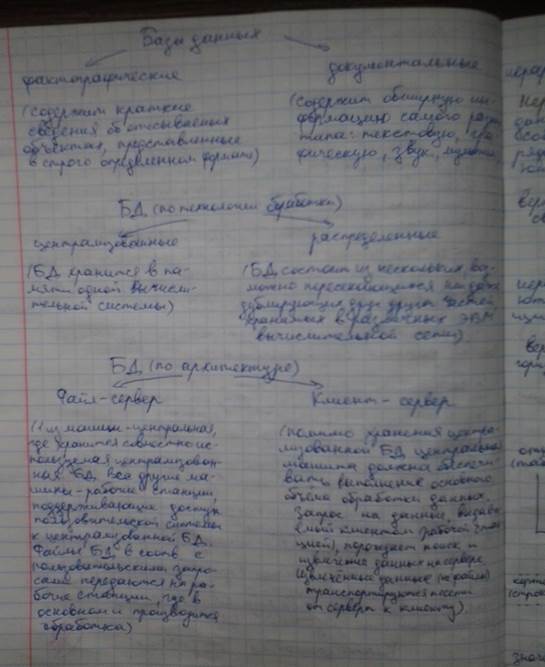 Базы данных
фактографические
документальные
(содержит краткие
сведения об описываемых
объектах, представленные
в строго определенном формате)
(содержит обширную ин-
формацию самого разн
типа: текстовую, гра
фическую, звук, мульти
БД (по технологии обработки)
централизованные
распределенные
(БД хранится в па-
мяти одной вычисли-
тельной системы)
(БД состоит из нескольких, воз-
можно пересекающихся или даже
дублирующих друг друга частей
хранимых в различных ЭВМ
вычислительной сети)
БД (по архитектуре)
Файл-сервер
Клиент-сервер
(1 из машин - центральная,
где хранится совместно ис-
пользуемая централизован-
ная БД. Все другие ма-
шины - рабочие станции,
поддерживающие доступ
пользовательской системы
к централизованной БД.
Файлы БД в соотв. с
пользовательскими запро-
сами передаются на ра-
бочие станции, где в
основном и производится
обработка)
(помимо хранения центра-
лизованной БД центральная
машина должна обеспечи-
вать выполнение основного
объема обработки данных.
Запрос на данные, выдава
емый клиентом (рабочей стан
цией), порождает поиск и
извлечение данных на сервере
Извлеченные данные (не файлы)
транспортируются по сети
от сервера к клиенту)